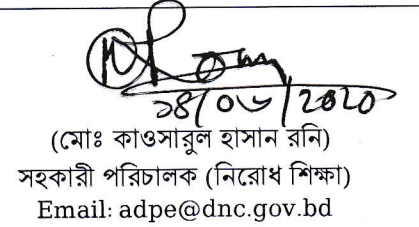 ১৪/০৬/২০২০
(মোঃ কাওসারুল হাসান রনি)
সহকারী পরিচালক (নিরোধ শিক্ষা)
Email: adpe@dnc.gov.bd